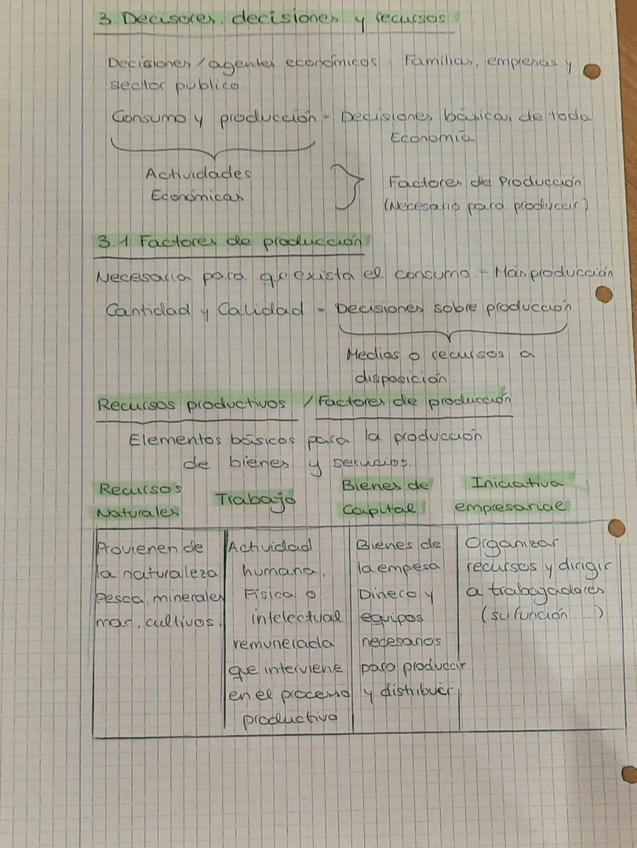 3. Decisores, decisiones y recursos
Decisiones/agentes económicos Familias, empresas y
sector público.
Consumo y producción - Decisiones básicas de toda
Economía
Actividades
Económicas
Factores de Producción
(Necesario para producir)
3.1 Factores de producción
Necesaria para que exista el consumo - Más producción
Cantidad y Calidad - Decisiones sobre producción
Medios o recursos a
disposición
Recursos productivos / Factores de producción
Elementos básicos para la producción
de bienes y servicios.
Recursos
Naturales
Trabajo
Bienes de
Capital
Iniciativa
empresarial
Provienen de
la naturaleza
Pesca, minerales
mar, cultivos.
Actividad
humana.
Física o
intelectual
remunerada
que interviene
en el proceso
productivo
Bienes de
la empesa
Dinero y
equipos
necesarios
para producir
y distribuir
Organizar
recursos y dirigir
a trabajadores
(su función ...)